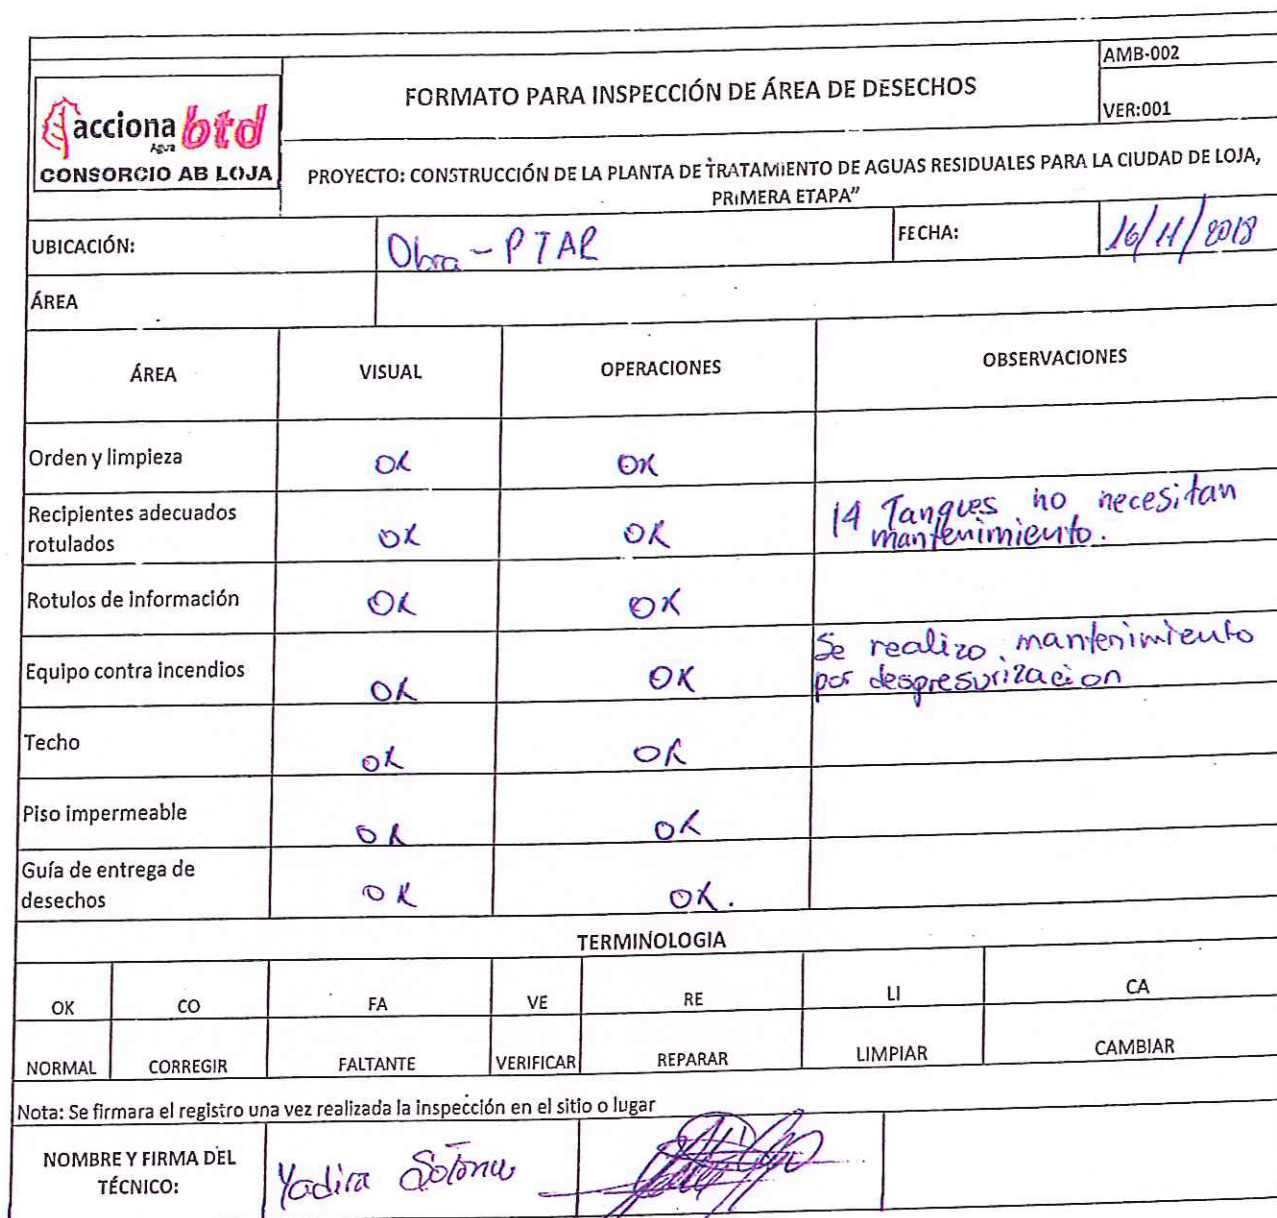 AMB-002
FORMATO PARA INSPECCIÓN DE ÁREA DE DESECHOS
VER:001
acciona btd
Agua
CONSORCIO AB LOJA
PROYECTO: CONSTRUCCIÓN DE LA PLANTA DE TRATAMIENTO DE AGUAS RESIDUALES PARA LA CIUDAD DE LOJA,
PRIMERA ETAPA”
UBICACIÓN: Obra - PTAR FECHA: 16/11/2018
ÁREA
ÁREA VISUAL OPERACIONES OBSERVACIONES
Orden y limpieza OK OK
Recipientes adecuados
rotulados OK OK 14 Tanques no necesitan
mantenimiento.
Rotulos de información OK OK
Equipo contra incendios OK OK Se realizo mantenimiento
por despresurizacion
Techo OK OK
Piso impermeable OK OK
Guía de entrega de
desechos OK OK.
TERMINOLOGIA
OK CO FA VE RE LI CA
NORMAL CORREGIR FALTANTE VERIFICAR REPARAR LIMPIAR CAMBIAR
Nota: Se firmara el registro una vez realizada la inspección en el sitio o lugar
NOMBRE Y FIRMA DEL
TÉCNICO: Yadira